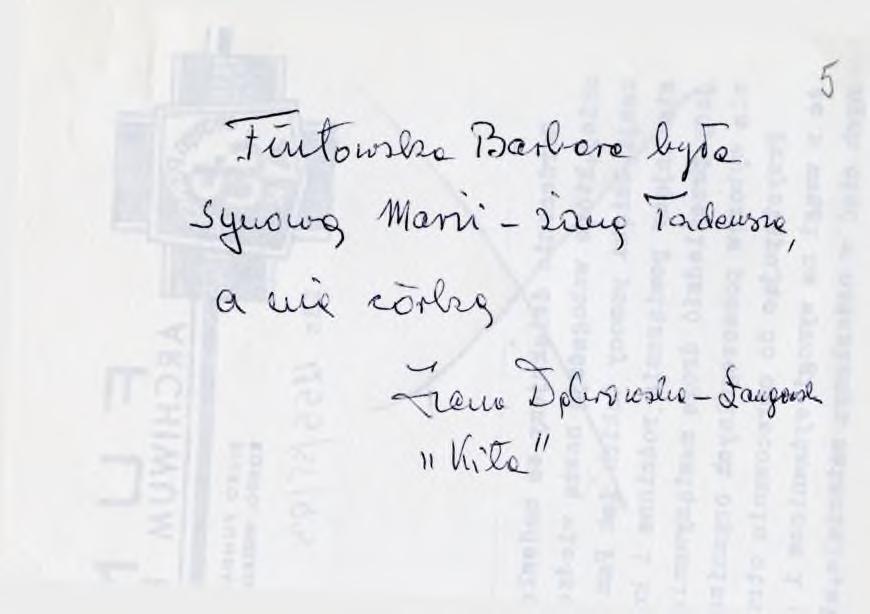 5
Fiutowska Barbara była
synową Marii – żoną Tadeusza,
a nie córką
Irena Dąbrowska –
"Kita"